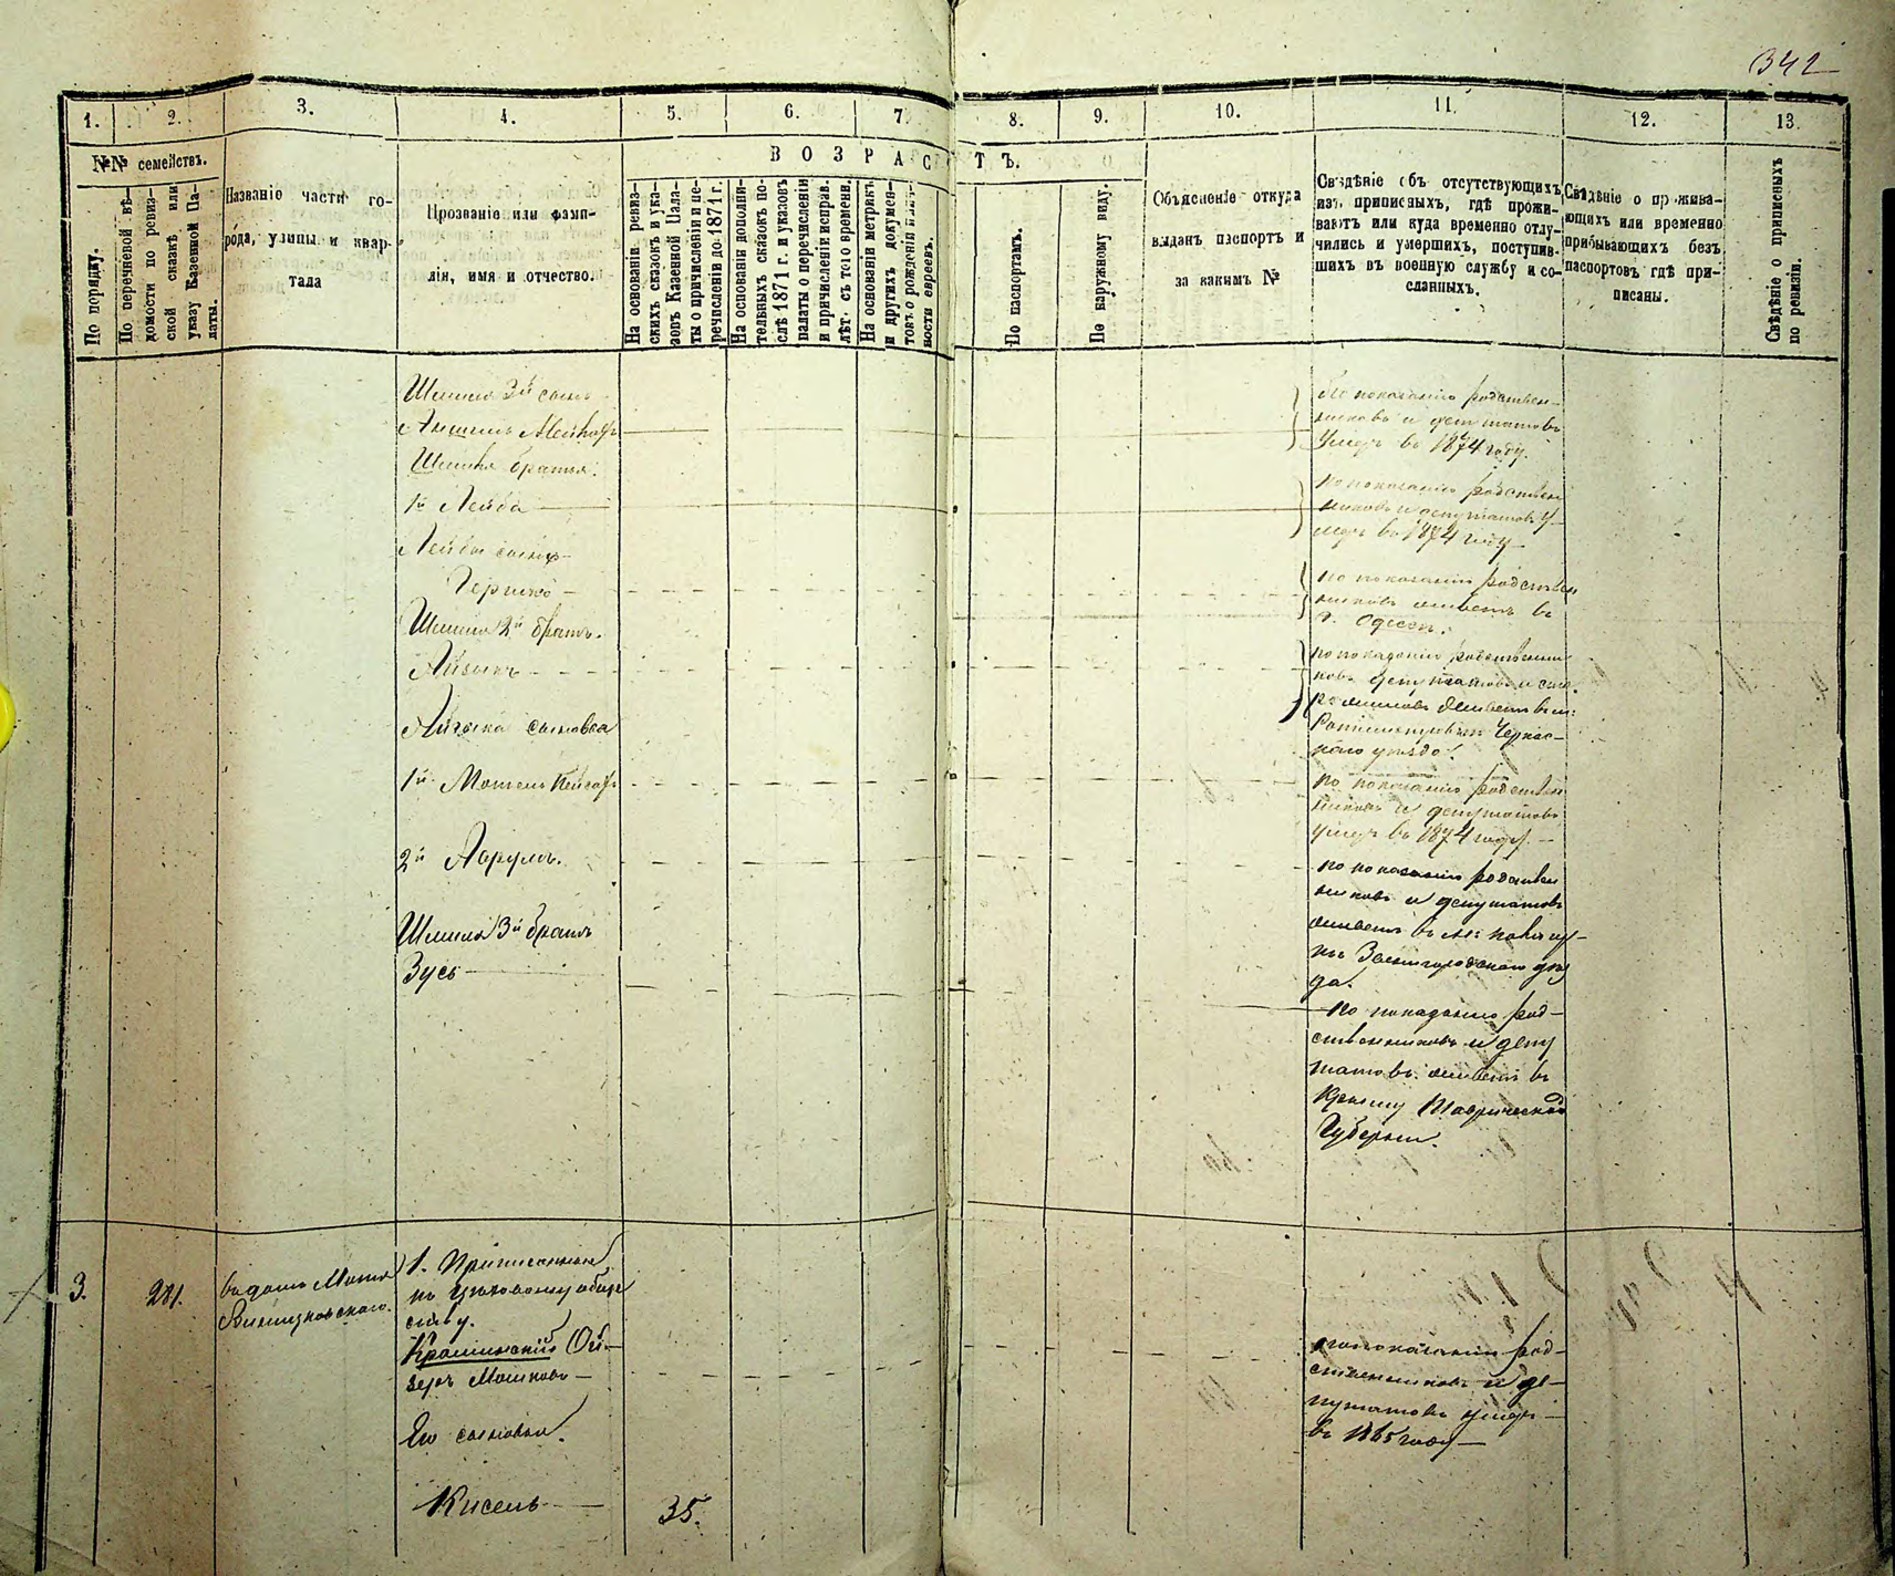 342
1.
2.
3.
4.
5.
6.
7.
8.
9.
10.
11.
12.
13.
№№ семействъ.
ВОЗРАСТЪ.
По порядку.
По перечневой вѣ-
домости по ревиз-
ской сказкѣ или
указу Казенной Па-
латы.
Названіе части го-
рода, улицы и квар-
тала
Прозваніе или фами-
лія, имя и отчество.
На основаніи ревиз-
скихъ сказокъ и ука-
зовъ Казенной Пала-
ты о причисленіи и пе-
речисленіи до 1871 г.
На основаніи дополни-
тельныхъ сказокъ по-
слѣ 1871 г. и указовъ
палаты о перечисленіи
и причисленіи исправ.
лѣт. съ того времени.
На основаніи метрикъ
и других докумен-
товъ о рожденіи
ности евреевъ.
По паспортамъ.
По наружному виду.
Объясненіе откуда
выданъ паспортъ и
за какимъ №
Свѣдѣніе объ отсутствующихъ
изъ приписныхъ, гдѣ прожи-
ваютъ или куда временно отлу-
чились и умершихъ, поступив-
шихъ въ военную службу и со-
сланныхъ.
Свѣдѣніе о прожива-
ющихъ или временно
прибывающихъ безъ
паспортовъ гдѣ при-
писаны.
Свѣдѣніе о приписныхъ
по ревизіи.
Шмиля 3й сынъ
Аншель
По показанію родствен-
никовъ и депутатовъ
Умеръ въ 1874 году.
братья.
1й Лейба
по показанію родствен
никовъ и депутатовъ У-
меръ въ 1874 году
Лейбы сынъ
Гершко
по показанію родствен
никовъ живетъ въ
г. Одессѣ.
Шмиля 2й братъ.
Айзикъ
по показанію родственни
ковъ депутатовъ и
живетъ въ м:
Черкас-
каго уѣзда.
Айзика сыновья
1й Мотель
по показанію родствен
никовъ и депутатовъ
умеръ въ 1874 году.
2й
по показанію родствен
никовъ и депутатовъ
живетъ въ м:
Звенигородскаго уѣз
да.
Шмиля 3й братъ
Зусь
по показанію род-
ственниковъ и депу
татовъ живетъ въ
Крыму Таврической
Губерніи.
3.
281.
въ домѣ
1. Приписанные
къ Цеховому общ
ству.
Ой-
зеръ Мошковъ
по показанію род-
ственниковъ и де-
путатовъ умеръ
въ 1865 году
Его сыновья.
Кисель
35.